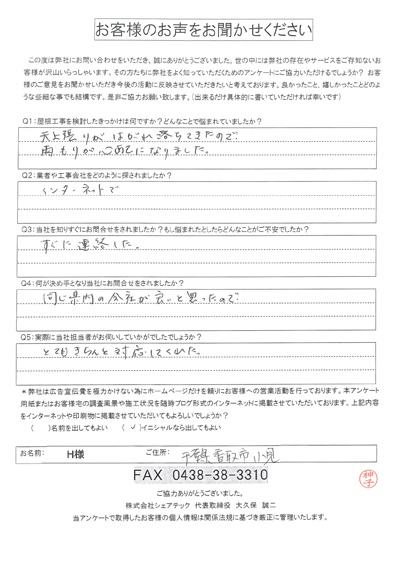 お客様のお声をお聞かせください
この度は弊社にお問い合わせをいただき、誠にありがとうございました。世の中には弊社の存在やサービスをご存知ないお
客様が沢山いらっしゃいます。その方たちに弊社をよく知っていただくためのアンケートにご協力いただけるでしょうか？ お客
様のご意見をお聞かせいただき今後の活動に反映させていただきたいと考えております。良かったこと、嬉しかったことどのよ
うな些細な事でも結構です。是非ご協力お願い致します。（出来るだけ具体的に書いていただければ幸いです）
Q1:屋根工事を検討したきっかけは何ですか？どんなことで悩まれていましたか？
天上張りがはがれ落ちてきたので
雨もりが心配になりました。
Q2:業者や工事会社をどのように探されましたか？
インターネットで
Q3:当社を知りすぐにお問合せをされましたか？もし悩まれたとしたらどんなことがご不安でしたか？
すぐに連絡した。
Q4:何が決め手となり当社にお問合せをされましたか？
同じ県内の会社が良いと思ったので
Q5:実際に当社担当者がお伺いしていかがでしたでしょうか？
とてもきちんと対応してくれた。
＊弊社は広告宣伝費を極力かけない為にホームページだけを頼りにお客様への営業活動を行っております。本アンケート
用紙またはお客様宅の調査風景や施工状況を随時ブログ形式のインターネットに掲載させていただいております。上記内容
をインターネットや印刷物に掲載させていただいてもよろしいでしょうか？
（　）名前を出してもよい　（ ✓ ）イニシャルなら出してもよい
お名前： H様 ご住所： 千葉県香取市小見
FAX 0438-38-3310
ご協力ありがとうございました。
株式会社シェアテック 代表取締役 大久保 誠二
当アンケートで取得したお客様の個人情報は関係法規に基づき厳正に管理いたします。